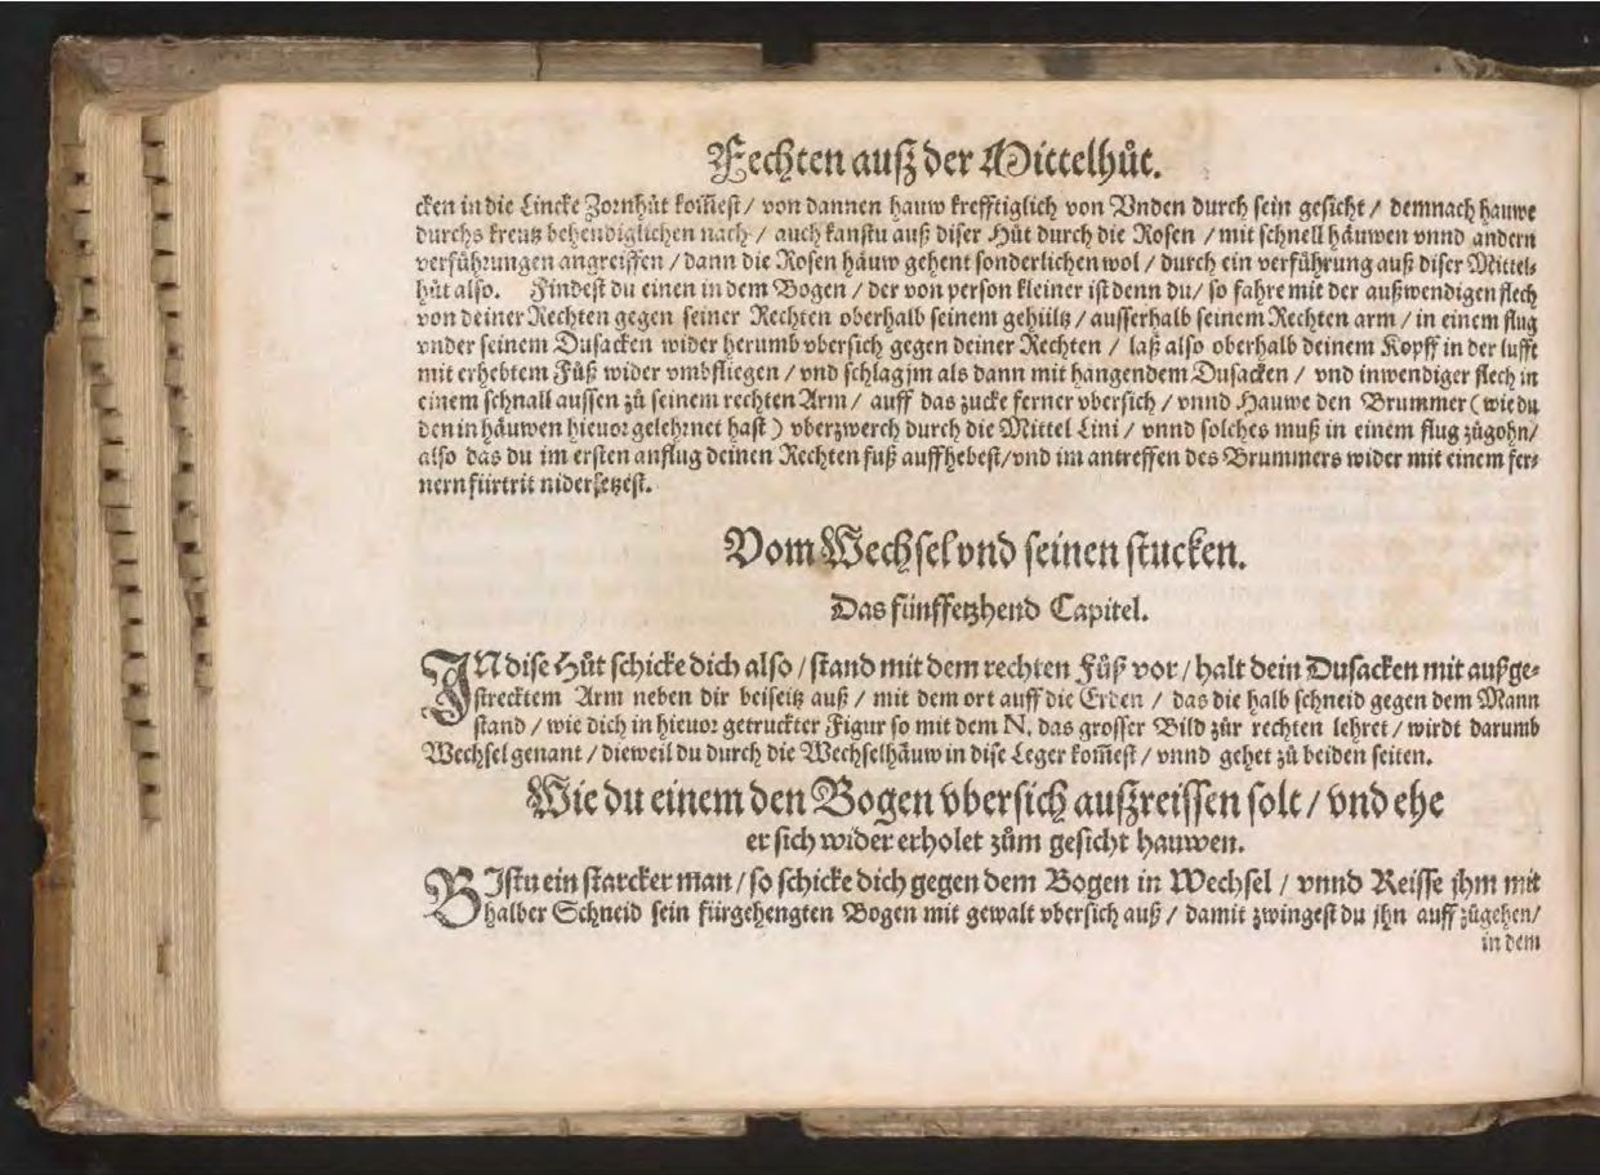 Fechten auß der Mittelhůt.
cken in die Lincke Zornhůt kom̃est / von dannen hauw krefftiglich von Vnden durch sein gesicht / demnach hauwe
durchs kreutz behendiglichen nach / auch kanstu auß diser Hůt durch die Rosen / mit schnell häuwen vnnd andern
verführungen angreiffen / dann die Rosen häuw gehent sonderlichen wol / durch ein verführung auß diser Mittel⸗
hůt also. Findest du einen in dem Bogen / der von person kleiner ist denn du / so fahre mit der außwendigen flech
von deiner Rechten gegen seiner Rechten oberhalb seinem gehültz / ausserhalb seinem Rechten arm / in einem flug
vnder seinem Dusacken wider herumb vbersich gegen deiner Rechten / laß also oberhalb deinem Kopff in der lufft
mit erhebtem Fůß wider vmbfliegen / vnd schlag jm als dann mit hangendem Dusacken / vnd inwendiger flech in
einem schnall aussen zů seinem rechten Arm / auff das zucke ferner vbersich / vnnd Hauwe den Brummer ( wie du
den in häuwen hieuor gelehrnet hast ) vberzwerch durch die Mittel Lini / vnnd solches muß in einem flug zůgohn /
also das du im ersten anflug deinen Rechten fuß auffhebest / vnd im antreffen des Brummers wider mit einem fer⸗
nern fürtrit nidersetzest.
Vom Wechsel vnd seinen stucken.
Das fünffetzhend Capitel.
IN dise Hůt schicke dich also / stand mit dem rechten Fůß vor / halt dein Dusacken mit außge⸗
strecktem Arm neben dir beiseitz auß / mit dem ort auff die Erden / das die halb schneid gegen dem Mann
stand / wie dich in hieuor getruckter Figur so mit dem N. das grosser Bild zůr rechten lehret / wirdt darumb
Wechsel genant / dieweil du durch die Wechselhäuw in dise Leger kom̃est / vnnd gehet zů beiden seiten.
Wie du einem den Bogen vbersich außreissen solt / vnd ehe
er sich wider erholet zům gesicht hauwen.
BIstu ein starcker man / so schicke dich gegen dem Bogen in Wechsel / vnnd Reisse jhm mit
halber Schneid sein fürgehengten Bogen mit gewalt vbersich auß / damit zwingest du jhn auff zůgehen /
in dem